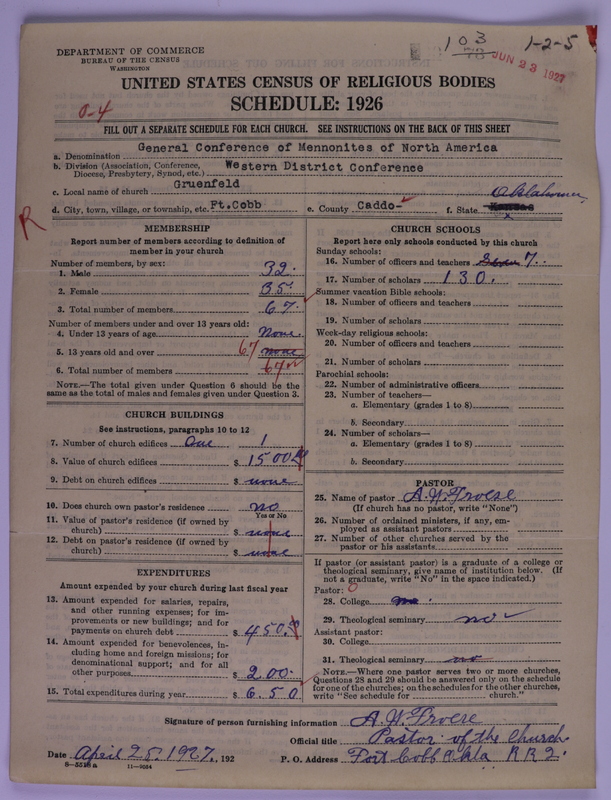 103
1-2-5
JUN 23 1927
DEPARTMENT OF COMMERCE
BUREAU OF THE CENSUS
WASHINGTON
UNITED STATES CENSUS OF RELIGIOUS BODIES
SCHEDULE: 1926
0-4
FILL OUT A SEPARATE SCHEDULE FOR EACH CHURCH. SEE INSTRUCTIONS ON THE BACK OF THIS SHEET
a. Denomination General Conference of Mennonites of North America
b. Division (Association, Conference, Diocese, Presbytery, Synod, etc.) Western District Conference
c. Local name of church Gruenfeld
d. City, town, village, or township, etc. Ft.Cobb e. County Caddo f. State Kansas Oklahoma
R
MEMBERSHIP
Report number of members according to definition of
member in your church
Number of members by sex:
1. Male 32.
2. Female 35.
3. Total number of members 67
Number of members under and over 13 years old:
4. Under 13 years of age None.
5. 13 years old and over 67 none
6. Total number of members 67
NOTE.—The total given under Question 6 should be the
same as the total of males and females given under Question 3.
CHURCH BUILDINGS
See instructions, paragraphs 10 to 12
7. Number of church edifices One 1
8. Value of church edifices $ 1500
9. Debt on church edifices $ none
10. Does church own pastor's residence no
Yes or No
11. Value of pastor's residence (if owned by
church) $ none
12. Debt on pastor's residence (if owned by
church) $ none
EXPENDITURES
Amount expended by your church during last fiscal year
13. Amount expended for salaries, repairs,
and other running expenses; for im-
provements or new buildings; and for
payments on church debt $ 450.
14. Amount expended for benevolences, in-
cluding home and foreign missions; for
denominational support; and for all
other purposes $ 200.
15. Total expenditures during year $ 650
CHURCH SCHOOLS
Report here only schools conducted by this church
Sunday schools:
16. Number of officers and teachers 7.
17. Number of scholars 130.
Summer vacation Bible schools:
18. Number of officers and teachers
19. Number of scholars
Week-day religious schools:
20. Number of officers and teachers
21. Number of scholars
Parochial schools:
22. Number of administrative officers
23. Number of teachers—
a. Elementary (grades 1 to 8)
b. Secondary
24. Number of scholars—
a. Elementary (grades 1 to 8)
b. Secondary
PASTOR
25. Name of pastor A.W. Froese
(If church has no pastor, write "None")
26. Number of ordained ministers, if any, em-
ployed as assistant pastors
27. Number of other churches served by the
pastor or his assistants
If pastor (or assistant pastor) is a graduate of a college or
theological seminary, give name of institution below. (If
not a graduate, write "No" in the space indicated.)
Pastor: 0
28. College no.
29. Theological seminary no
Assistant pastor:
30. College
31. Theological seminary no
NOTE.—Where one pastor serves two or more churches,
Questions 28 and 29 should be answered only on the schedule
for one of the churches; on the schedules for the other churches,
write "See schedule for church."
Signature of person furnishing information A. W. Froese
Official title Pastor of the Church.
Date April 25, 1927, 192 P. O. Address Fort Cobb Okla R R 2.
8-5518a 11-9684